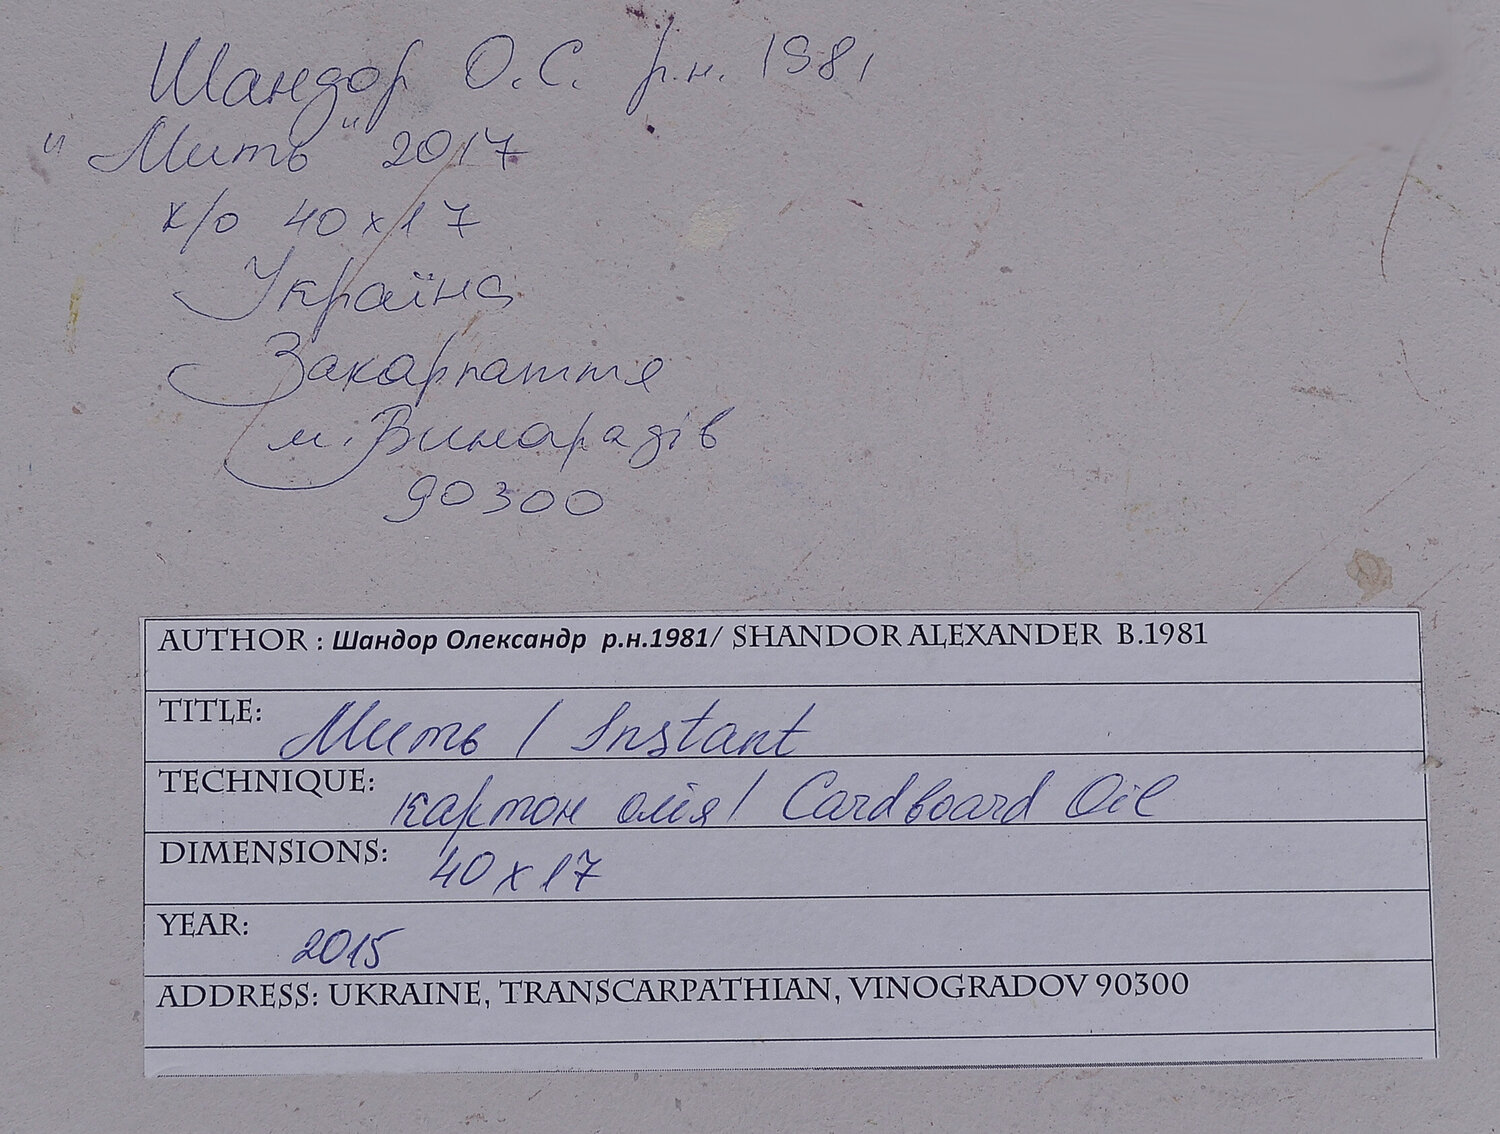 Шандор О.С. р.н. 1981
"Мить" 2017
к/о 40х17
Україна
Закарпаття
м. Винарадів
90300
AUTHOR : Шандор Олександр р.н.1981/ SHANDOR ALEXANDER B.1981
TITLE: Мить / Instant
TECHNIQUE: картон олія/ Cardboard Oil
DIMENSIONS: 40х17
YEAR: 2015
ADDRESS: UKRAINE, TRANSCARPATHIAN, VINOGRADOV 90300